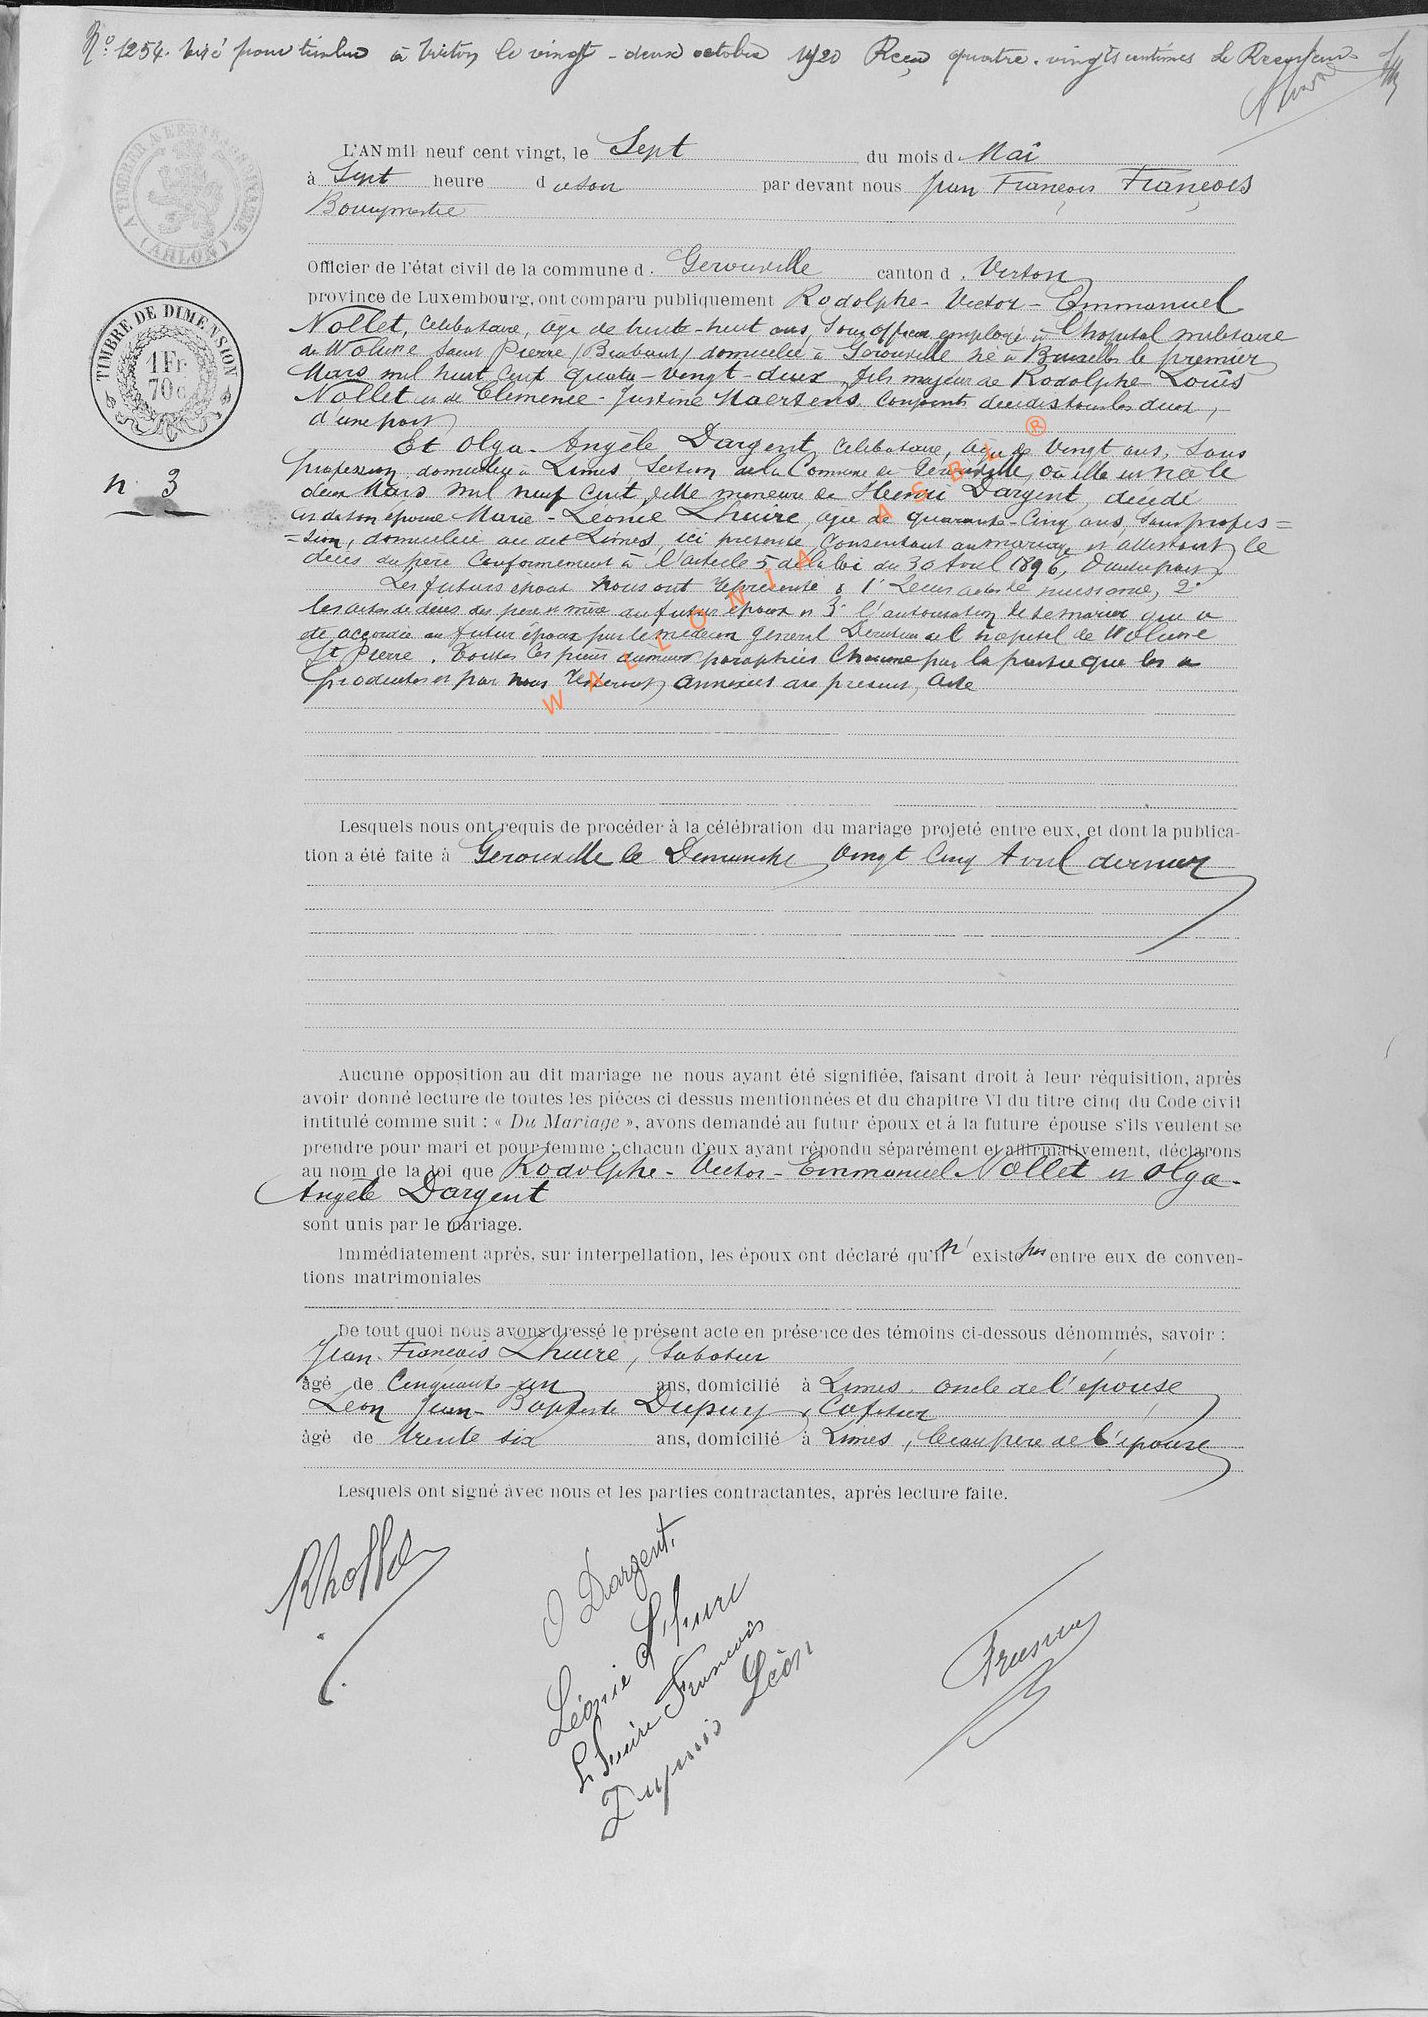 N° 1254. Visé pour timbre à Virton le vingt-deux octobre 1920 Reçu quatre-vingts centimes Le Receveur
A TIMBRER A L'EXTRAORDINAIRE
(ARLON)
TIMBRE DE DIMENSION
1 Fr
70 c
n 3
L'AN mil neuf cent vingt, le Sept du mois d Mai
à Sept heure d u soir par devant nous Jean François François
Bourgmestre
Officier de l'état civil de la commune d . Gerouville canton d . Virton
province de Luxembourg, ont comparu publiquement Rodolphe-Victor-Emmanuel
Nollet, celibataire, âgé de trente-huit ans, Sous officier employé à l'hopital militaire
de Woluwe Saint Pierre (Brabant) domicilié à Gerouville né à Bruxelles le premier
Mars mil huit cent quatre-vingt-deux, fils majeur de Rodolphe Louis
Nollet et de Clémence-Justine Maertens conjoints décédés tous les deux,
d'une part
Et Olga-Angèle Dargent, celibataire, âgée de vingt ans, sans
profession, domiciliée à Limes Section de la Commune de Gérouville, où elle est née le
deux Mars mil neuf cent, fille mineure de Henri Dargent, décédé
et de son épouse Marie-Léonie Lhuire, âgée de quarante-cinq ans, sans profes=
=sion, domiciliée au dit Limes, ici présente consentant au mariage et attestant le
décès du père conformément à l'article 5 de la loi du 30 Avril 1896, d'autre part.
Les futurs époux nous ont représenté : 1° Leurs actes de naissance, 2°
les actes de décès des père et mère du futur époux et 3° l'autorisation de se marier qui a
été accordée au futur époux par le médecin général Directeur de l'hôpital de Woluwe
St Pierre. Toutes ces pièces dûment paraphées chacune par la partie que les a
produites et par nous resteront annexées au présent acte
WALLONIA ASBL ®
Lesquels nous ont requis de procéder à la célébration du mariage projeté entre eux, et dont la publica-
tion a été faite à Gerouville le Dimanche vingt cinq Avril dernier
Aucune opposition au dit mariage ne nous ayant été signifiée, faisant droit à leur réquisition, après
avoir donné lecture de toutes les pièces ci dessus mentionnées et du chapitre VI du titre cinq du Code civil
intitulé comme suit : « Du Mariage », avons demandé au futur époux et à la future épouse s'ils veulent se
prendre pour mari et pour femme ; chacun d'eux ayant répondu séparément et affirmativement, déclarons
au nom de la loi que Rodolphe-Victor-Emmanuel Nollet et Olga-
Angèle Dargent
sont unis par le mariage.
Immédiatement après, sur interpellation, les époux ont déclaré qu'il n' existe pas entre eux de conven-
tions matrimoniales
De tout quoi nous avons dressé le présent acte en présence des témoins ci-dessous dénommés, savoir :
Jean-François Lhuire, Sabotier
âgé de Cinquante-un ans, domicilié à Limes oncle de l'épouse
Léon Jean-Baptiste Dupuy, Cafetier
âgé de trente six ans, domicilié à Limes, beau père de l'épouse
Lesquels ont signé avec nous et les parties contractantes, après lecture faite.
O Dargent.
Léonie Lhuire
Lhuire François
Dupuis Léon